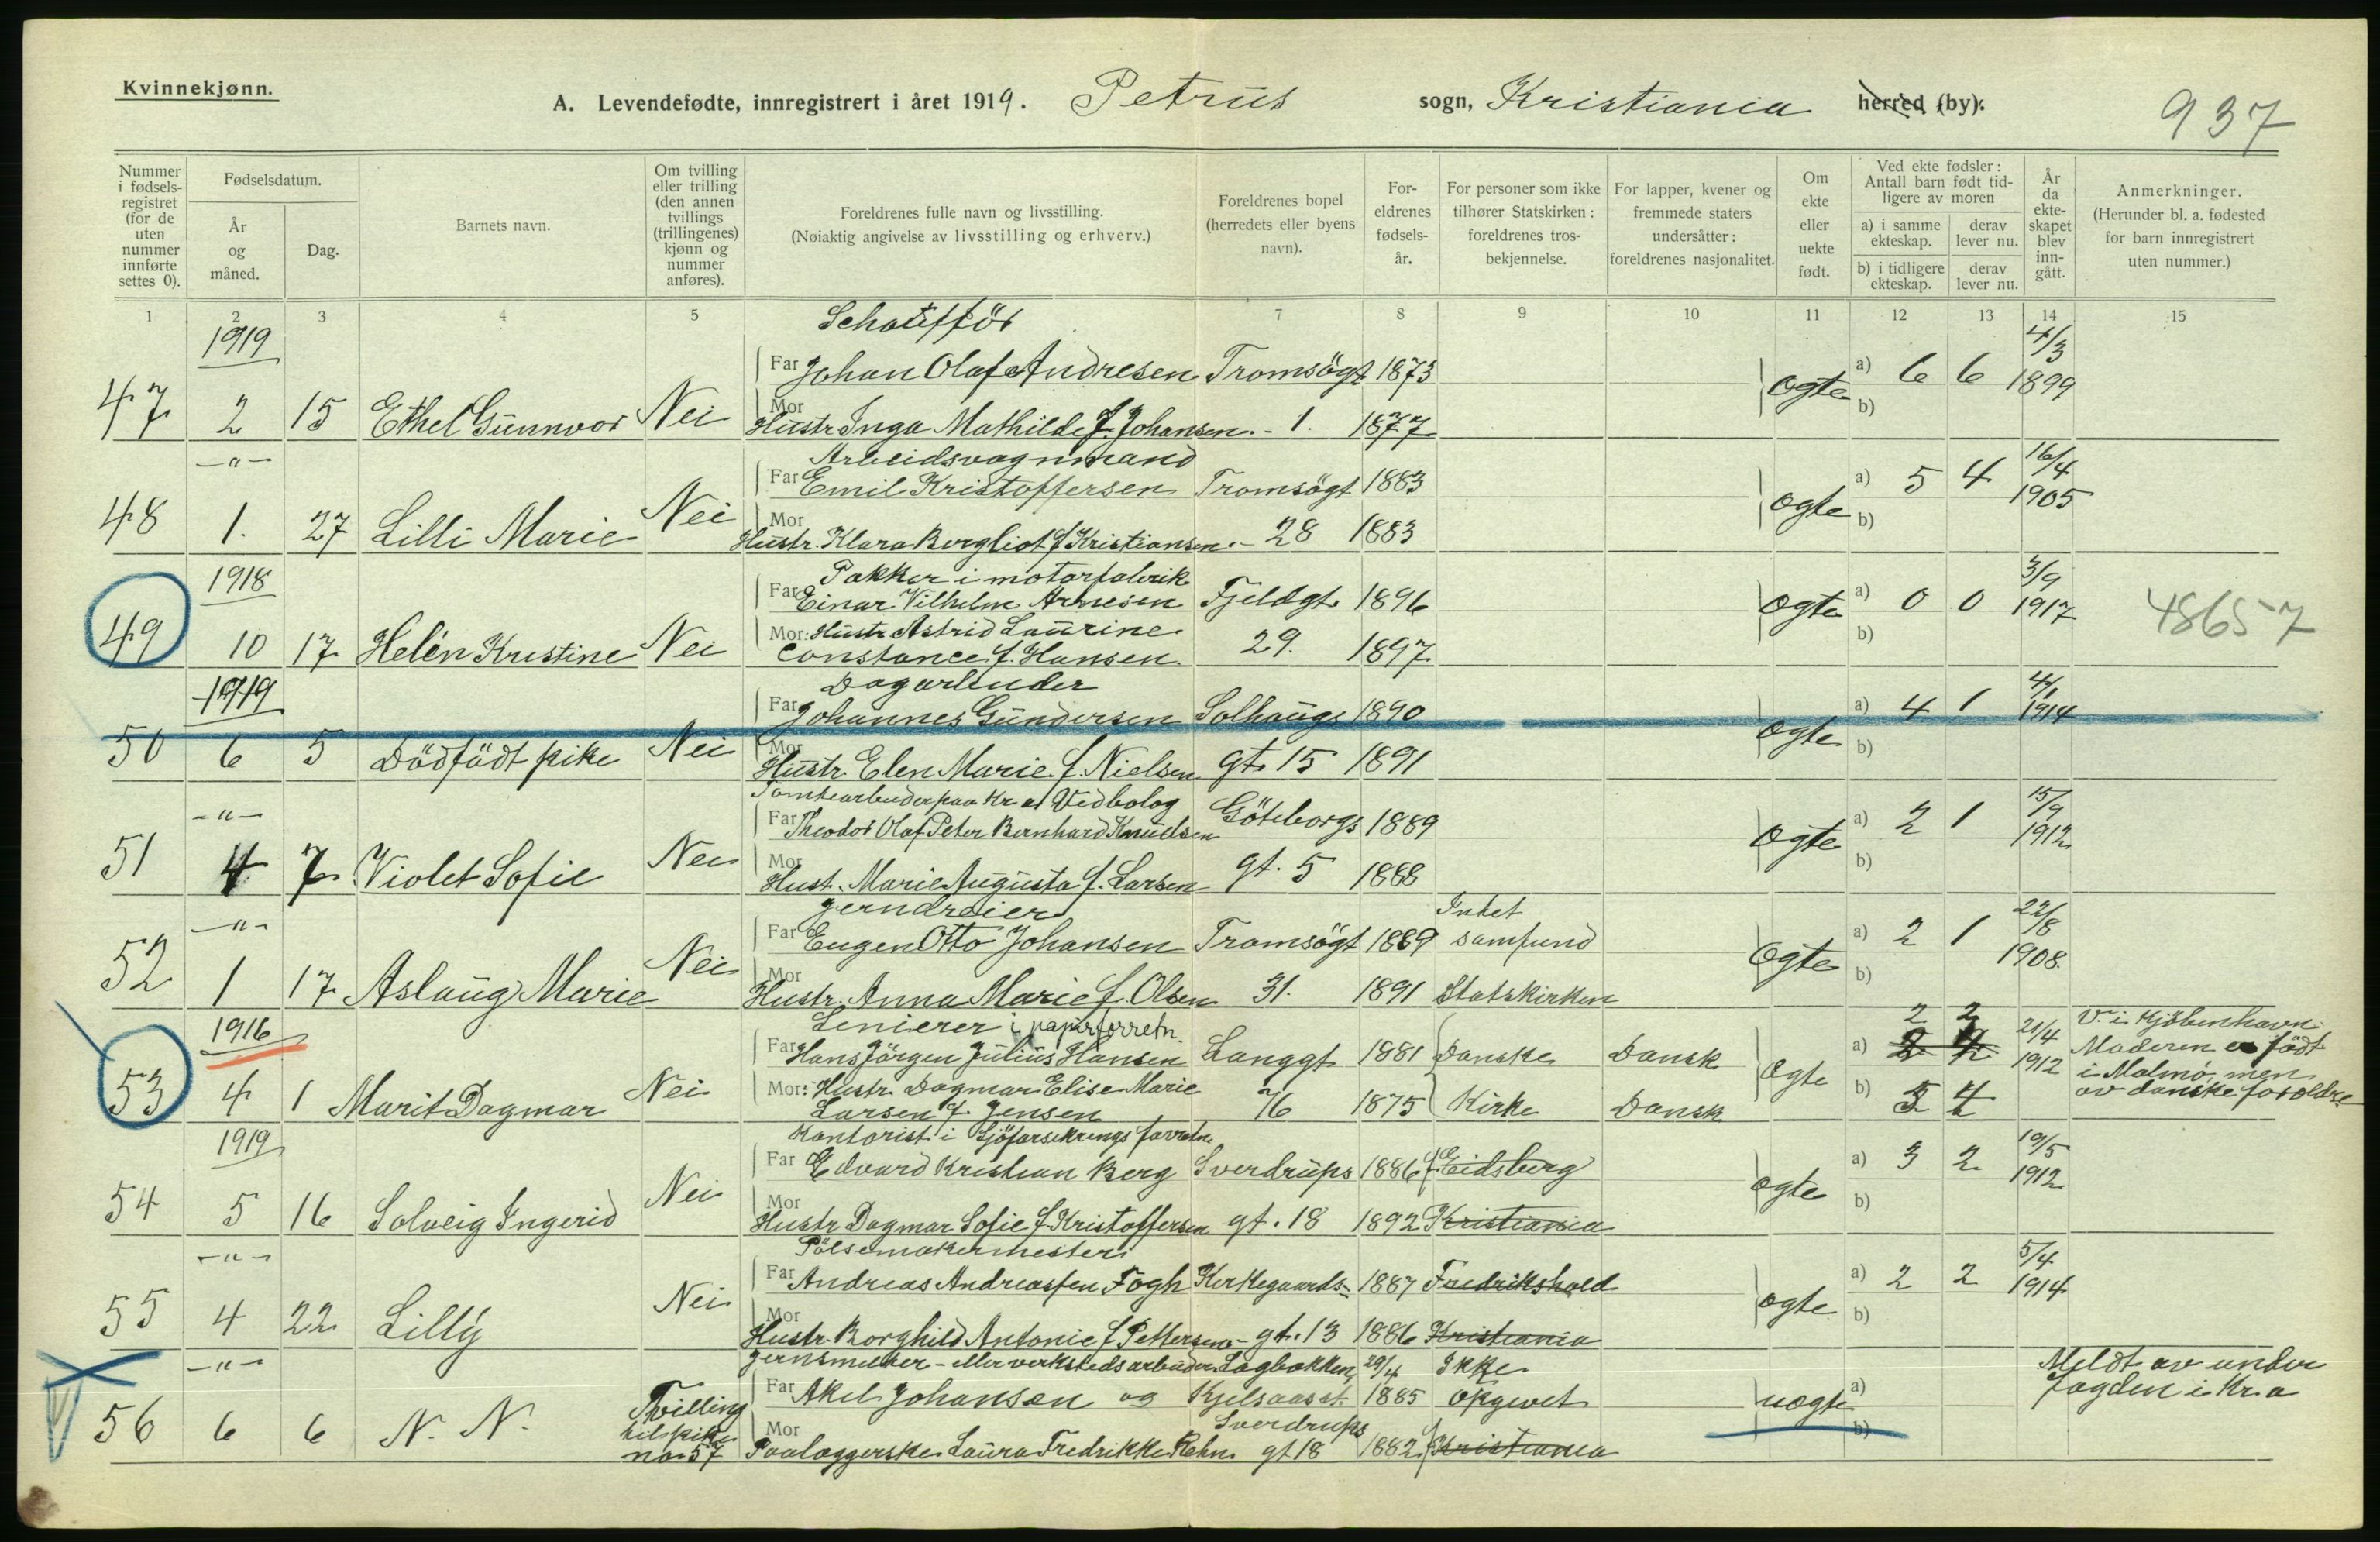 Kvinnekjønn.
A. Levendefødte, innregistrert i året 1919. Petrus sogn, Kristiania herred (by).
937
Nummer i fødsels-registret (for de uten nummer innførte settes 0).
Fødselsdatum.
År og måned.
Dag.
Barnets navn.
Om tvilling eller trilling (den annen tvillings (trillingenes) kjønn og nummer anføres).
Foreldrenes fulle navn og livsstilling. (Nøiaktig angivelse av livsstilling og erhverv.)
Foreldrenes bopel (herredets eller byens navn).
For-eldrenes fødsels-år.
For personer som ikke tilhører Statskirken: foreldrenes tros-bekjennelse.
For lapper, kvener og fremmede staters undersåtter: foreldrenes nasjonalitet.
Om ekte eller uekte født.
Ved ekte fødsler: Antall barn født tid-ligere av moren
a) i samme ekteskap. derav lever nu.
b) i tidligere ekteskap. derav lever nu.
År da ekte-skapet blev inn-gått.
Anmerkninger. (Herunder bl. a. fødested for barn innregistrert uten nummer.)
1 2 3 4 5 7 8 9 10 11 12 13 14 15
1919 Schaufför 4/3
Far Johan Olaf Andresen Tromsögt 1873 a) 6 6 1899
47 2 15 Ethel Gunnvor Nei Mor Hustr Inga Mathilde f. Johansen. - 1. 1877 ogte b)
-"- Arbeidsvognmand 16/4
Far Emil Kristoffersen Tromsögt 1883 a) 5 4 1905
48 1. 27 Lilli Marie Nei Mor Hustr. Klara Bergliot f Kristiansen. - 28 1883 ogte b)
1918 Pakker i motorfabrik 3/9
Far Einar Vilhelm Arnesen Fjeldgt. 1896 ogte a) 0 0 1917 48657
49 10 17 Helén Kristine Nei Mor: Hustr Astrid Laurine
Constance f. Hansen. 29. 1897 b)
1919 Dagarbeider 4/1
Far Johannes Gundersen Solhaugs 1890 a) 4 1 1914
50 6 5 Dödfödt pike Nei Mor Hustr. Elen Marie f. Nielsen gt. 15 1891 ogte b)
-"- Tomtearbeider paa Kr.a Vedbolag 15/9
Far Theodor Olaf Peter Bernhard Knudsen Göteborgs 1889 a) 2 1 1912
51 4 7 Violet Sofie Nei Mor Hust. Marie Augusta f. Larsen gt. 5 1888 ogte b)
-"- Jerndreier Intet 22/8
Far Eugen Otto Johansen Tromsögt 1889 samfund a) 2 1 1908
52 1 17 Aslaug Marie Nei Mor Hustr. Anna Marie f. Olsen 31. 1891 Statskirken ogte b)
1916 Linierer i papirforretn. 2 2 21/4 V. i Kjöbenhavn.
Far Hans Jörgen Julius Hansen Langgt 1881 Danske Dansk a) 2 4 1912 Moderen er födt
53 4 1 Marit Dagmar Nei Mor: Hustr. Dagmar Elise Marie ogte i Malmö, men
Larsen f. Jensen 76 1875 Kirke Dansk b) 5 4 av danske foreldre
1919 Kontorist i Sjöforsikrings forretn. 10/5
Far Edvard Kristian Berg Sverdrups 1886 f. Eidsberg a) 3 2 1912
54 5 16 Solveig Ingerid Nei Mor Hustr Dagmar Sofie f Kristoffersen gt. 18 1892 Kristiania ogte b)
-"- Pölsemakermester 5/4
Far Andreas Andreassen Fogh Kirkegaards- 1887 Fredrikshald a) 2 2 1914
55 4 22 Lilly Nei Mor Hustr. Borghild Antonie f Pettersen - gt. 13 1886 Kristiania ogte b)
-"- Jernsmelter - eller verkstedsarbeider Lagbokken, 29/4 Ikke Meldt av under
Far Axel Johansen og Kjelsaasst. 1885 opgivet a) fogden i Kr.a
56 6 6 N. N. Tvilling til pike no. 57 Mor Sverdrups
Paalæggerske Laura Fredrikke Rehn gt 18 1882 f Kristiania uogte b)